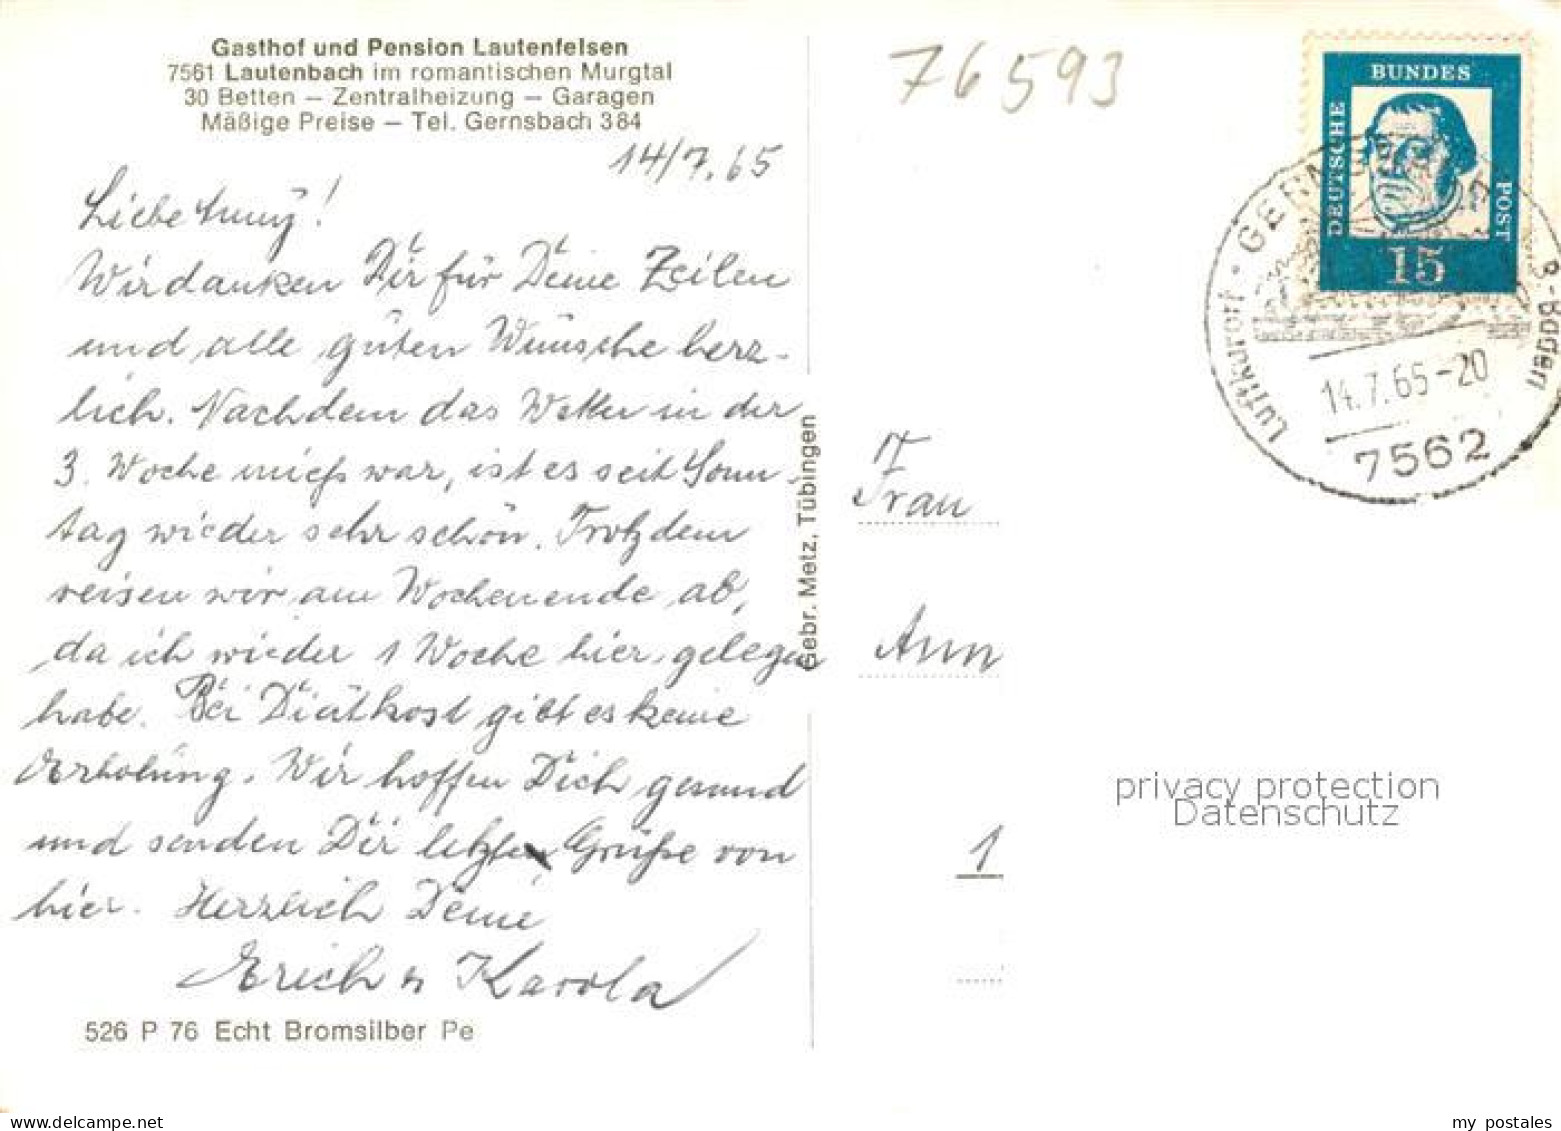 Gasthof und Pension Lautenfelsen
7561 Lautenbach im romantischen Murgtal
30 Betten – Zentralheizung – Garagen
Mäßige Preise – Tel. Gernsbach 384
14/7.65
Liebe Anny!
Wir danken Dir für Deine Zeilen
und alle guten Wünsche herz-
lich. Nachdem das Wetter in der
3. Woche mies war, ist es seit Sonn-
tag wieder sehr schön. Trotzdem
reisen wir am Wochenende ab,
da ich wieder 1 Woche hier gelegen
habe. Bei Diätkost gibt es keine
Erholung. Wir hoffen Dich gesund
und senden Dir letzten Grüße von
hier. Herzlich Deine
Erich u Karola
526 P 76 Echt Bromsilber Pe
Gebr. Metz, Tübingen
76593
DEUTSCHE
BUNDES
POST
15
Luftkurort
14.7.65-20
7562
Frau
Ann
1
privacy protection
Datenschutz
my postales